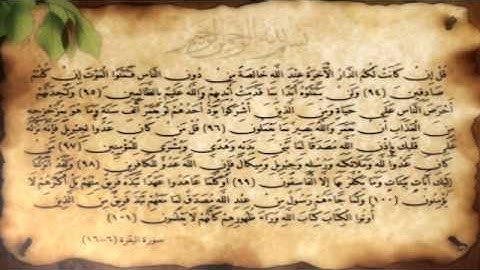 بسم الله الرحمن الرحيم
قُلْ إِنْ كَانَتْ لَكُمُ الدَّارُ الْآخِرَةُ عِنْدَ اللَّهِ خَالِصَةً مِنْ دُونِ النَّاسِ فَتَمَنَّوُا الْمَوْتَ إِنْ كُنْتُمْ
صَادِقِينَ (٩٤) وَلَنْ يَتَمَنَّوْهُ أَبَدًا بِمَا قَدَّمَتْ أَيْدِيهِمْ وَاللَّهُ عَلِيمٌ بِالظَّالِمِينَ (٩٥) وَلَتَجِدَنَّهُمْ
أَحْرَصَ النَّاسِ عَلَى حَيَاةٍ وَمِنَ الَّذِينَ أَشْرَكُوا يَوَدُّ أَحَدُهُمْ لَوْ يُعَمَّرُ أَلْفَ سَنَةٍ وَمَا هُوَ بِمُزَحْزِحِهِ
مِنَ الْعَذَابِ أَنْ يُعَمَّرَ وَاللَّهُ بَصِيرٌ بِمَا يَعْمَلُونَ (٩٦) قُلْ مَنْ كَانَ عَدُوًّا لِجِبْرِيلَ فَإِنَّهُ نَزَّلَهُ
عَلَى قَلْبِكَ بِإِذْنِ اللَّهِ مُصَدِّقًا لِمَا بَيْنَ يَدَيْهِ وَهُدًى وَبُشْرَى لِلْمُؤْمِنِينَ (٩٧) مَنْ
كَانَ عَدُوًّا لِلَّهِ وَمَلَائِكَتِهِ وَرُسُلِهِ وَجِبْرِيلَ وَمِيكَالَ فَإِنَّ اللَّهَ عَدُوٌّ لِلْكَافِرِينَ (٩٨) وَلَقَدْ أَنْزَلْنَا
إِلَيْكَ آيَاتٍ بَيِّنَاتٍ وَمَا يَكْفُرُ بِهَا إِلَّا الْفَاسِقُونَ (٩٩) أَوَكُلَّمَا عَاهَدُوا عَهْدًا نَبَذَهُ فَرِيقٌ مِنْهُمْ بَلْ أَكْثَرُهُمْ لَا
يُؤْمِنُونَ (١٠٠) وَلَمَّا جَاءَهُمْ رَسُولٌ مِنْ عِنْدِ اللَّهِ مُصَدِّقٌ لِمَا مَعَهُمْ نَبَذَ فَرِيقٌ مِنَ الَّذِينَ
أُوتُوا الْكِتَابَ كِتَابَ اللَّهِ وَرَاءَ ظُهُورِهِمْ كَأَنَّهُمْ لَا يَعْلَمُونَ (١٠١)
سورة البقرة